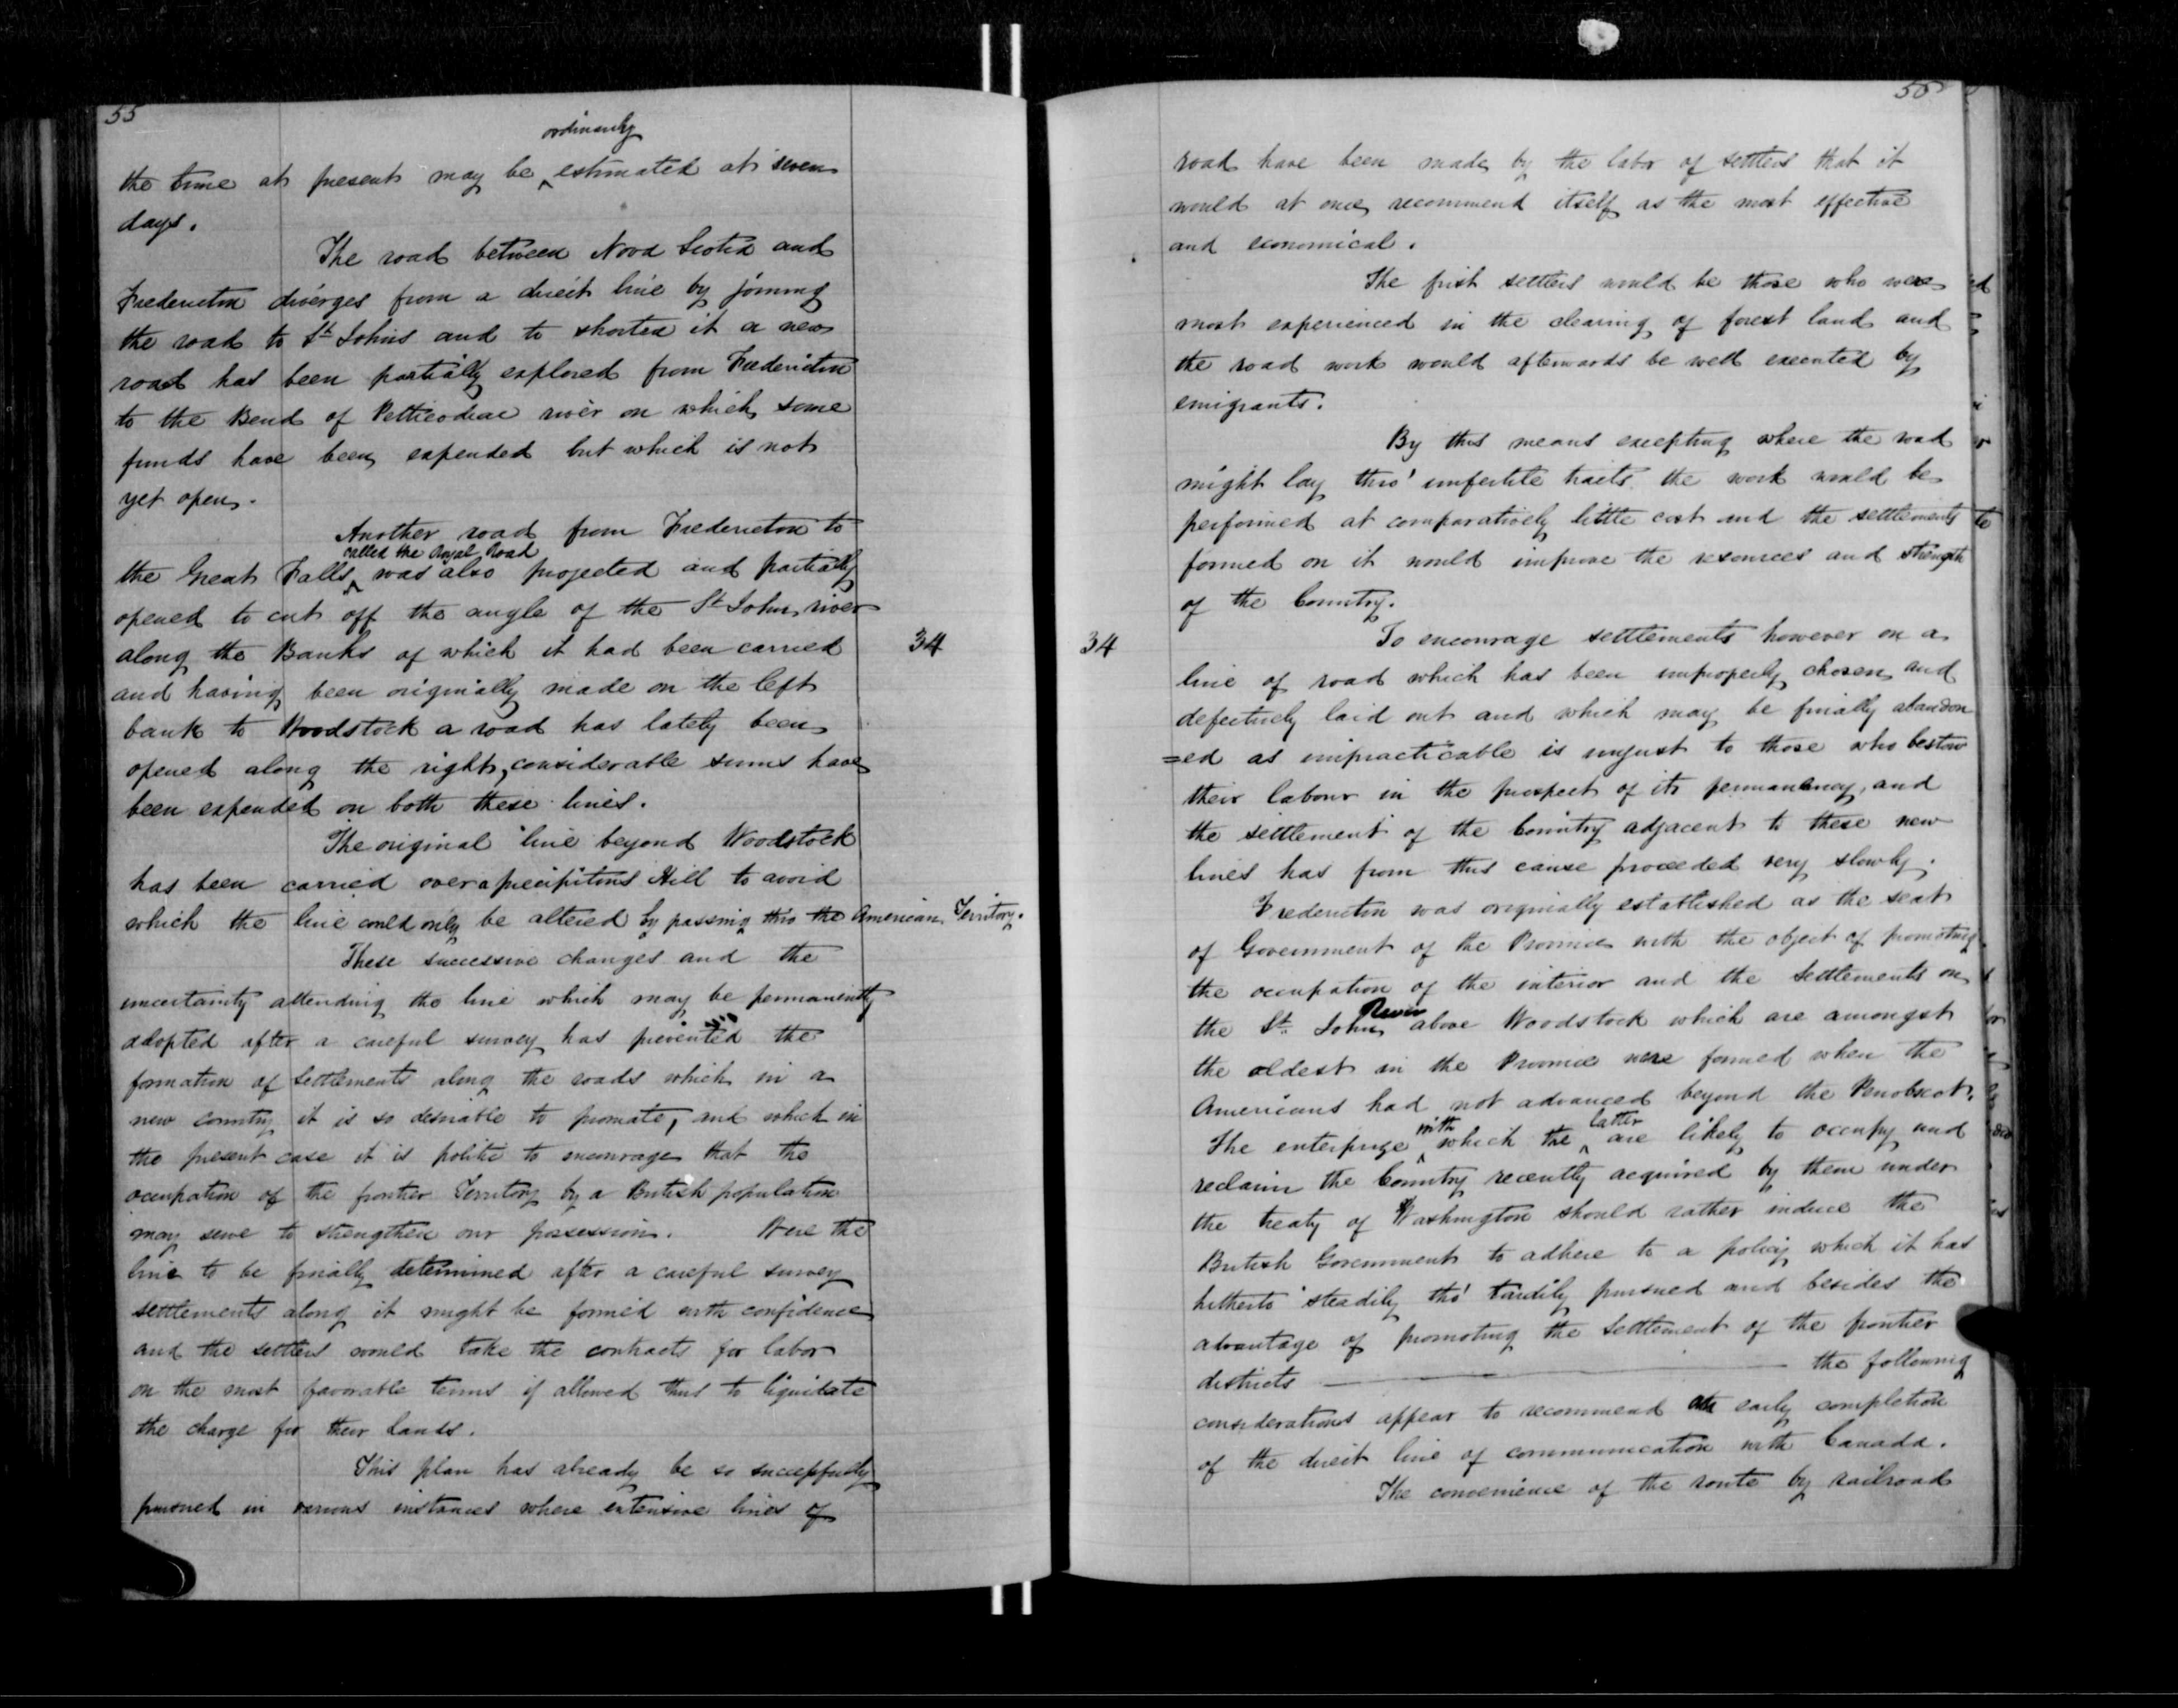 55
the time at present may be ordinarily estimated at seven
days.
The road between Nova Scotia and
Fredericton diverges from a direct line by joining
the road to St Johns and to shorten it a new
road has been partially explored from Fredericton
to the Bend of Petticodiac river on which some
funds have been expended but which is not
yet open.
Another road from Fredericton to
the Great Falls called the Royal Road was also projected and partially
opened to cut off the angle of the St John river
along the Banks of which it had been carried
34
and having been originally made on the left
bank to Woodstock a road has lately been
opened along the right, considerable sums have
been expended on both these lines.
The original line beyond Woodstock
has been carried over a precipitous Hill to avoid
which the line could only be altered by passing thro the American Territory.
These successive changes and the
uncertainty attending the line which may be permanently
adopted after a careful survey has prevented the
formation of settlements along the roads which in a
new country it is so desirable to promote, and which in
the present case it is politic to encourage that the
occupation of the frontier Territory by a British population
may serve to strengthen our possession. Were the
line to be finally determined after a careful survey
settlements along it might be formed with confidence
and the settlers would take the contracts for labor
on the most favorable terms if allowed thus to liquidate
the charge for their lands.
This plan has already be so successfully
pursued in various instances where extensive lines of
56
road have been made by the labor of settlers that it
would at once recommend itself as the most effective
and economical.
The first settlers would be those who were
most experienced in the clearing of forest land and
the road work would afterwards be well executed by
emigrants.
By this means excepting where the road
might lay thro' unfertile tracts the work would be
performed at comparatively little cost and the settlements
formed on it would improve the resources and strength
of the Country.
34
To encourage settlements however on a
line of road which has been improperly chosen and
defectively laid out and which may be finally abandon
=ed as impracticable is unjust to those who bestow
their labour in the prospect of its permanency, and
the settlement of the Country adjacent to these new
lines has from this cause proceeded very slowly.
Fredericton was originally established as the seat
of Government of the Province with the object of promoting
the occupation of the interior and the settlements on
the St. John River above Woodstock which are amongst
the oldest in the Province were formed when the
Americans had not advanced beyond the Penobscot.
The enterprize with which the latter are likely to occupy and
reclaim the Country recently acquired by them under
the treaty of Washington should rather induce the
British Government to adhere to a policy which it has
hitherto steadily tho' tardily pursued and besides the
advantage of promoting the settlement of the frontier
districts — the following
considerations appear to recommend the early completion
of the direct line of communication with Canada.
The convenience of the route by railroad